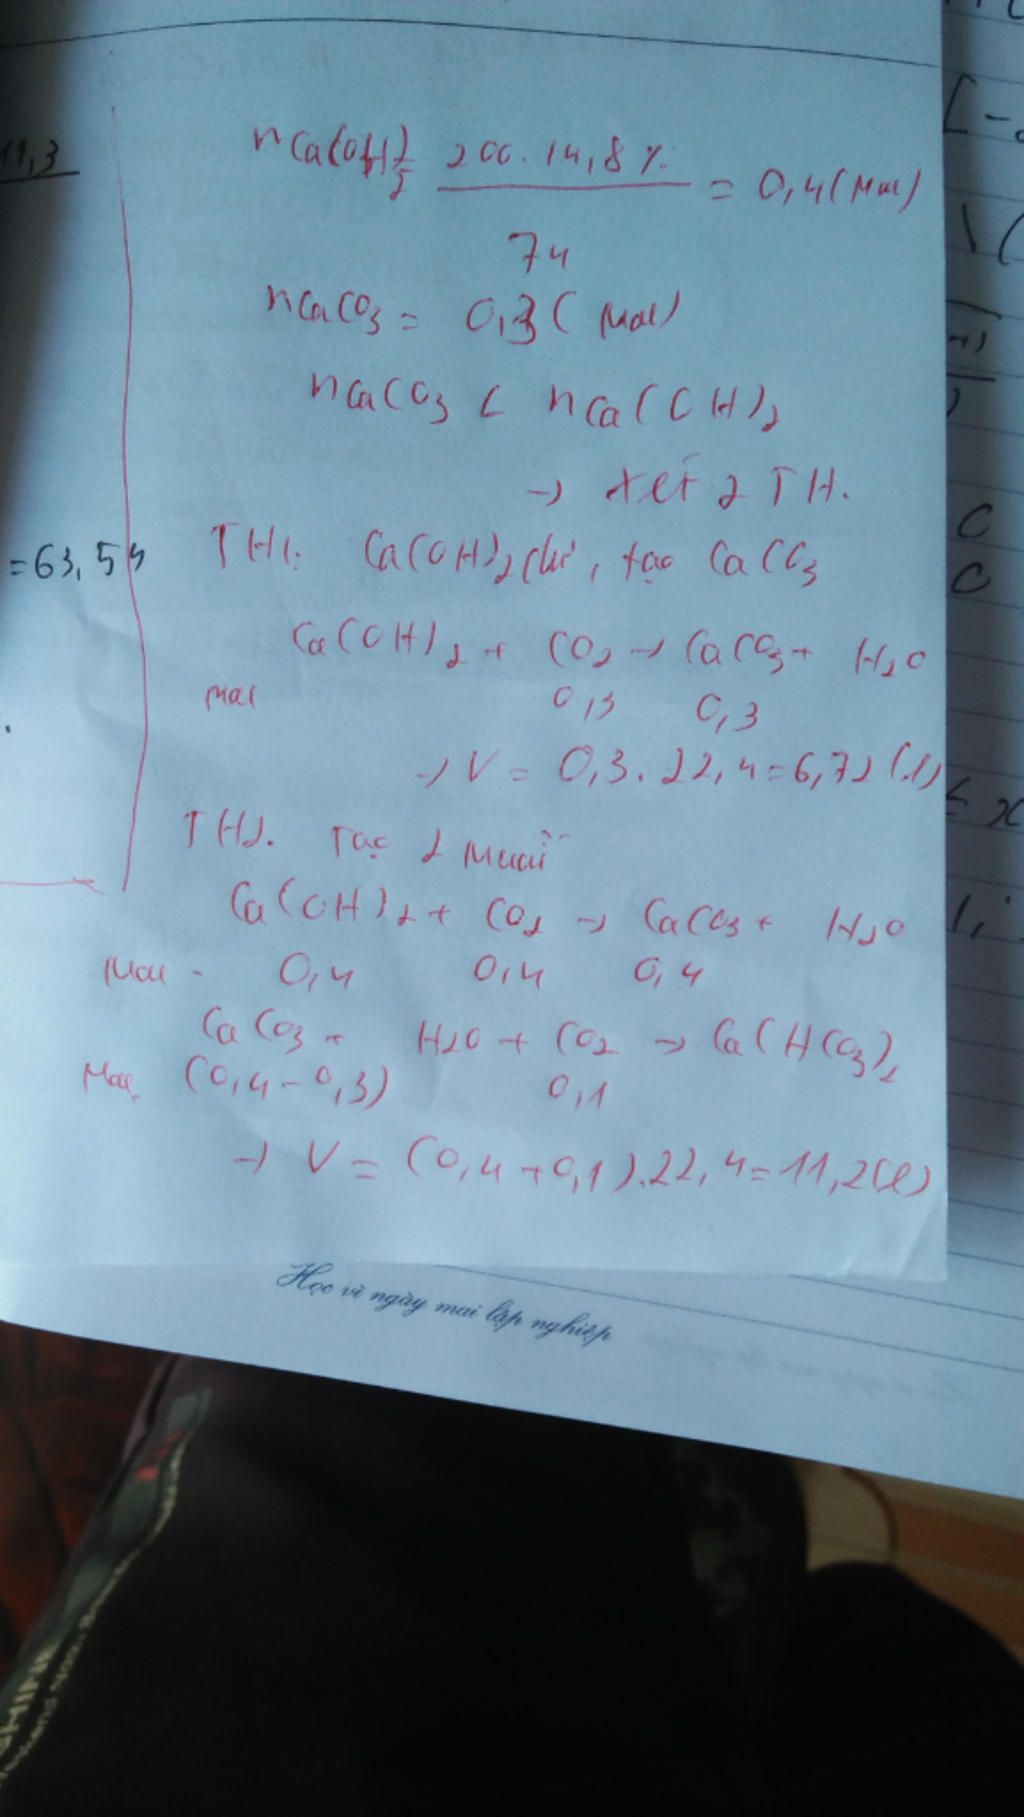 11,3
nCa(OH)2 = 200.14,8% / 74 = 0,4 (mol)
nCaCO3 = 0,3 (mol)
nCaCO3 < nCa(OH)2
→ xét 2 TH.
=63,54
TH1: Ca(OH)2 dư, tạo CaCO3
Ca(OH)2 + CO2 → CaCO3 + H2O
mol 0,3 0,3
→ V = 0,3.22,4=6,72 (l)
TH2. Tạo 2 muối
Ca(OH)2 + CO2 → CaCO3 + H2O
mol - 0,4 0,4 0,4
CaCO3 + H2O + CO2 → Ca(HCO3)2
mol (0,4-0,3) 0,1
→ V = (0,4+0,1).22,4=11,2(l)
Học vì ngày mai lập nghiệp